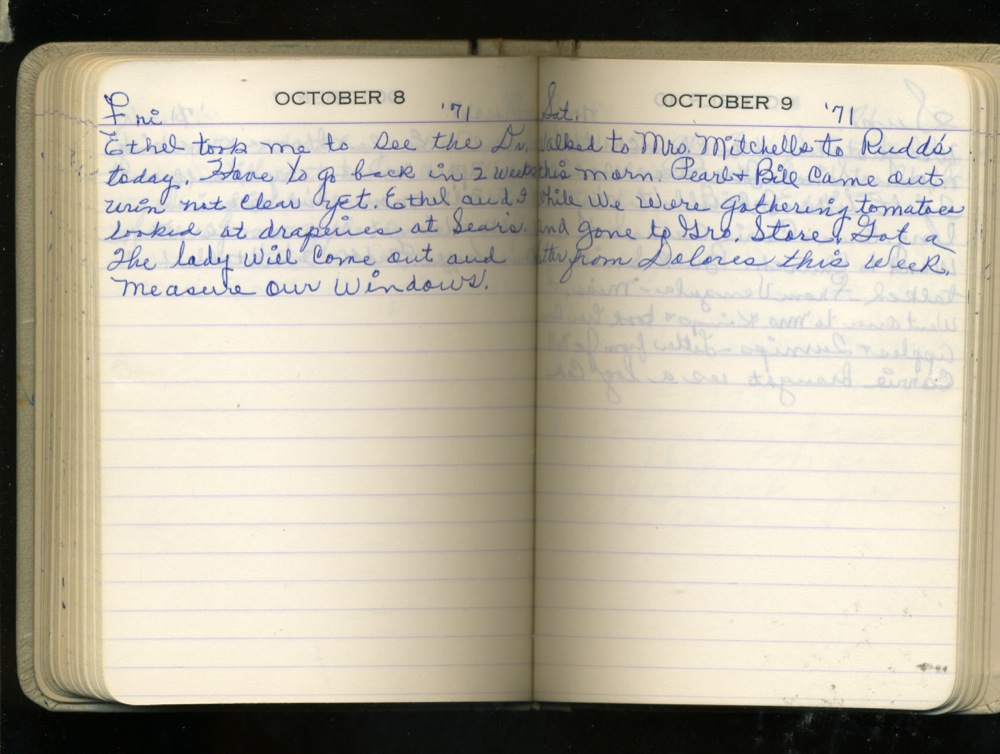 OCTOBER 8
Fri '71
Ethel took me to see the Dr.
today. Have to go back in 2 weeks
urin not clear yet. Ethel and I
looked at draperies at Sears.
The lady will come out and
measure our windows.
OCTOBER 9
Sat. '71
Walked to Mrs. Mitchells to Rudds
this morn. Pearl + Bill came out
while we were gathering tomatoes
and gone to Gro. Store. Got a
ltr from Dolores this week.